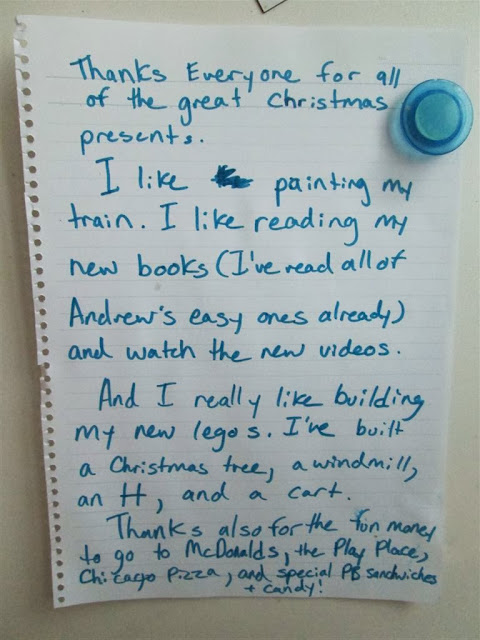 Thanks Everyone for all
of the great Christmas
presents.
I like painting my
train. I like reading my
new books (I've read all of
Andrew's easy ones already)
and watch the new videos.
And I really like building
my new legos. I've built
a Christmas tree, a windmill,
an H, and a cart.
Thanks also for the fun money
to go to McDonalds, the Play Place,
Chicago Pizza, and special PB sandwiches
+ candy!